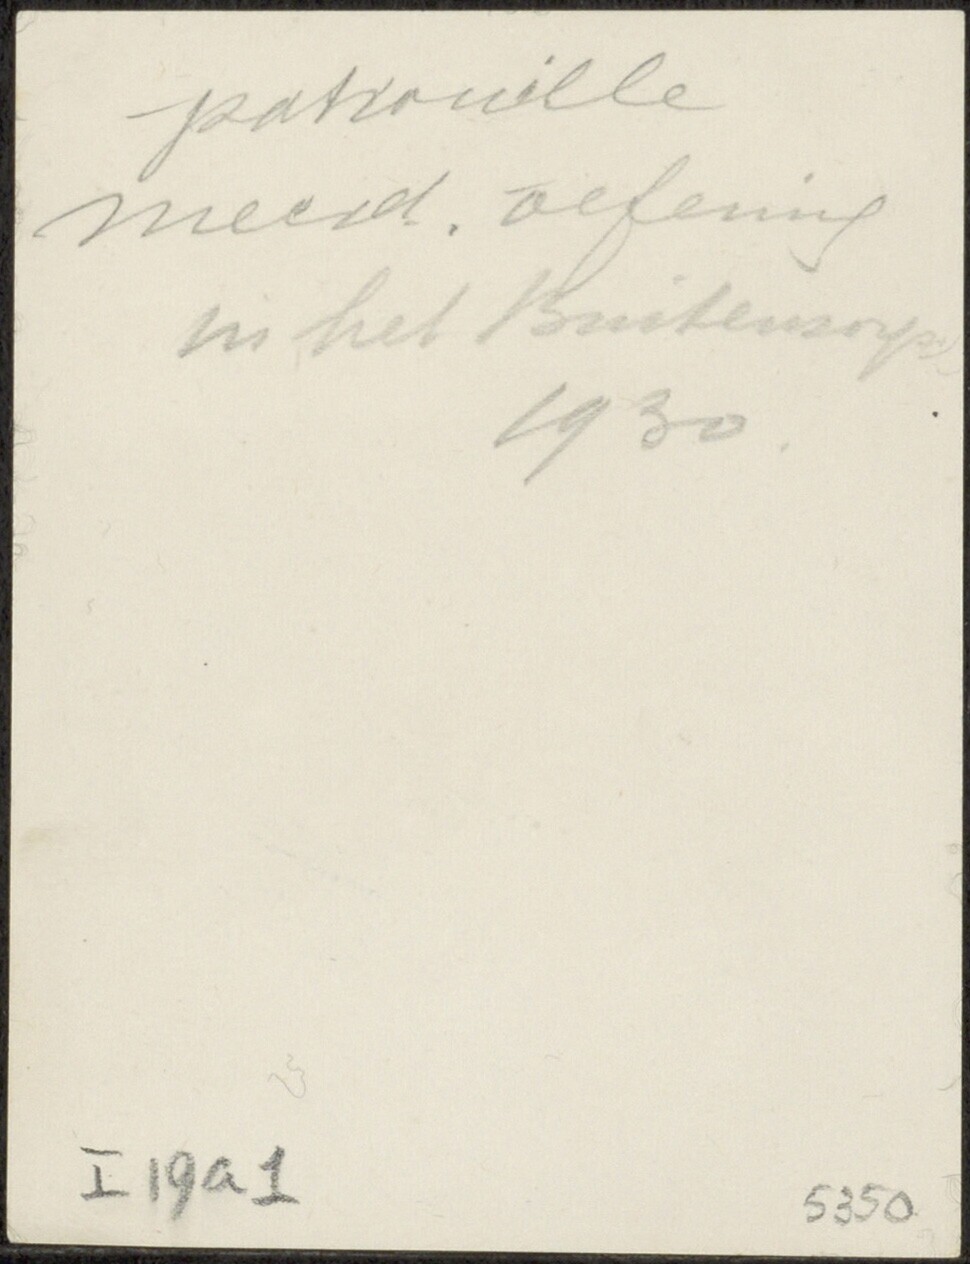 patrouille
meerd. oefening
in het Buitenzorgs
1930.
I 19a1
5350